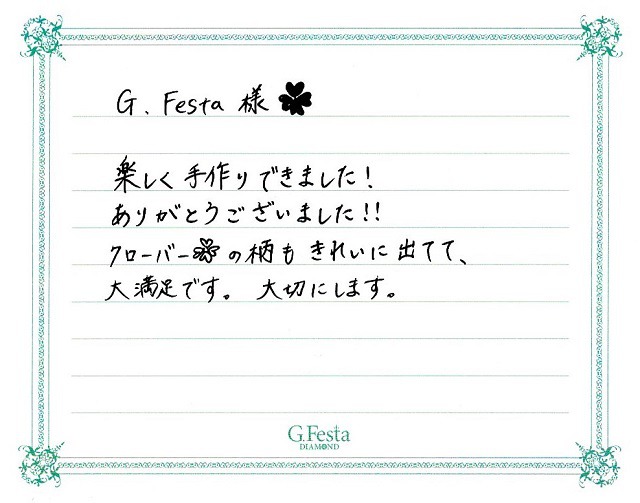 G. Festa 様
楽しく手作りできました!
ありがとうございました!!
クローバーの柄もきれいに出てて、
大満足です。 大切にします。
G.Festa
DIAMOND